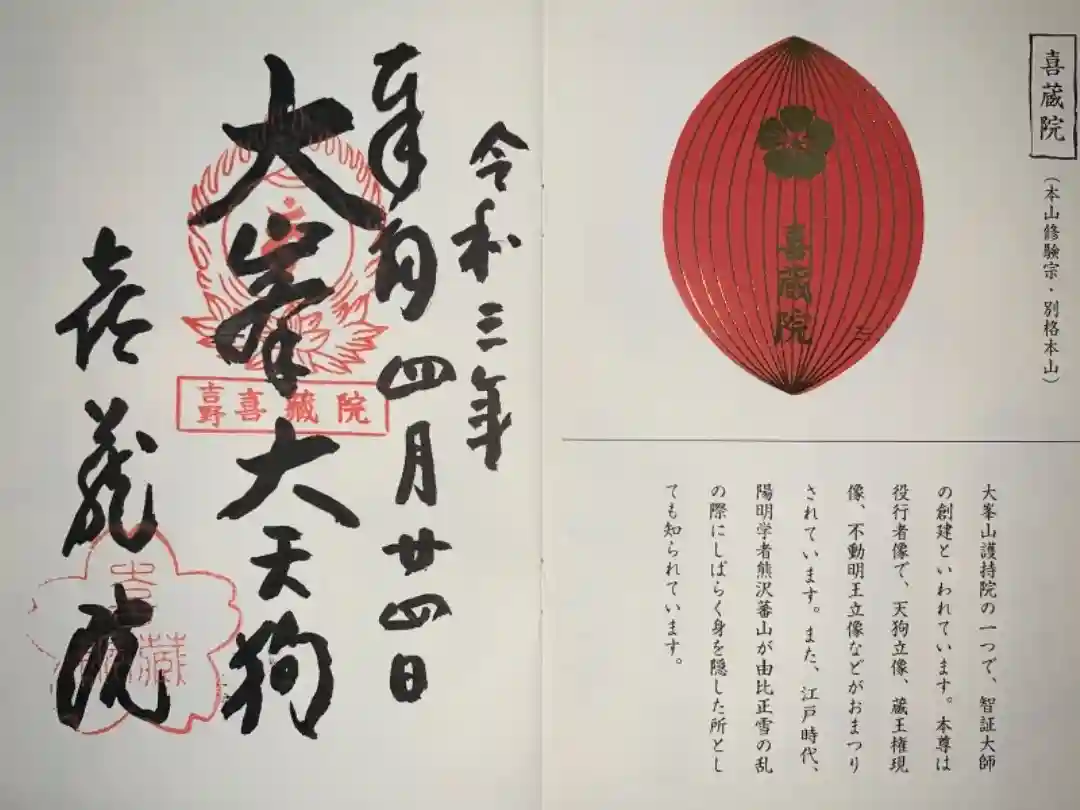 喜蔵院
（本山修験宗・別格本山）
喜蔵院
大峯山護持院の一つで、智証大師
の創建といわれています。本尊は
役行者像で、天狗立像、蔵王権現
像、不動明王立像などがおまつり
されています。また、江戸時代、
陽明学者熊沢蕃山が由比正雪の乱
の際にしばらく身を隠した所とし
ても知られています。
令和三年
奉拝 四月廿四日
大峯大天狗
吉野喜蔵院
喜蔵院